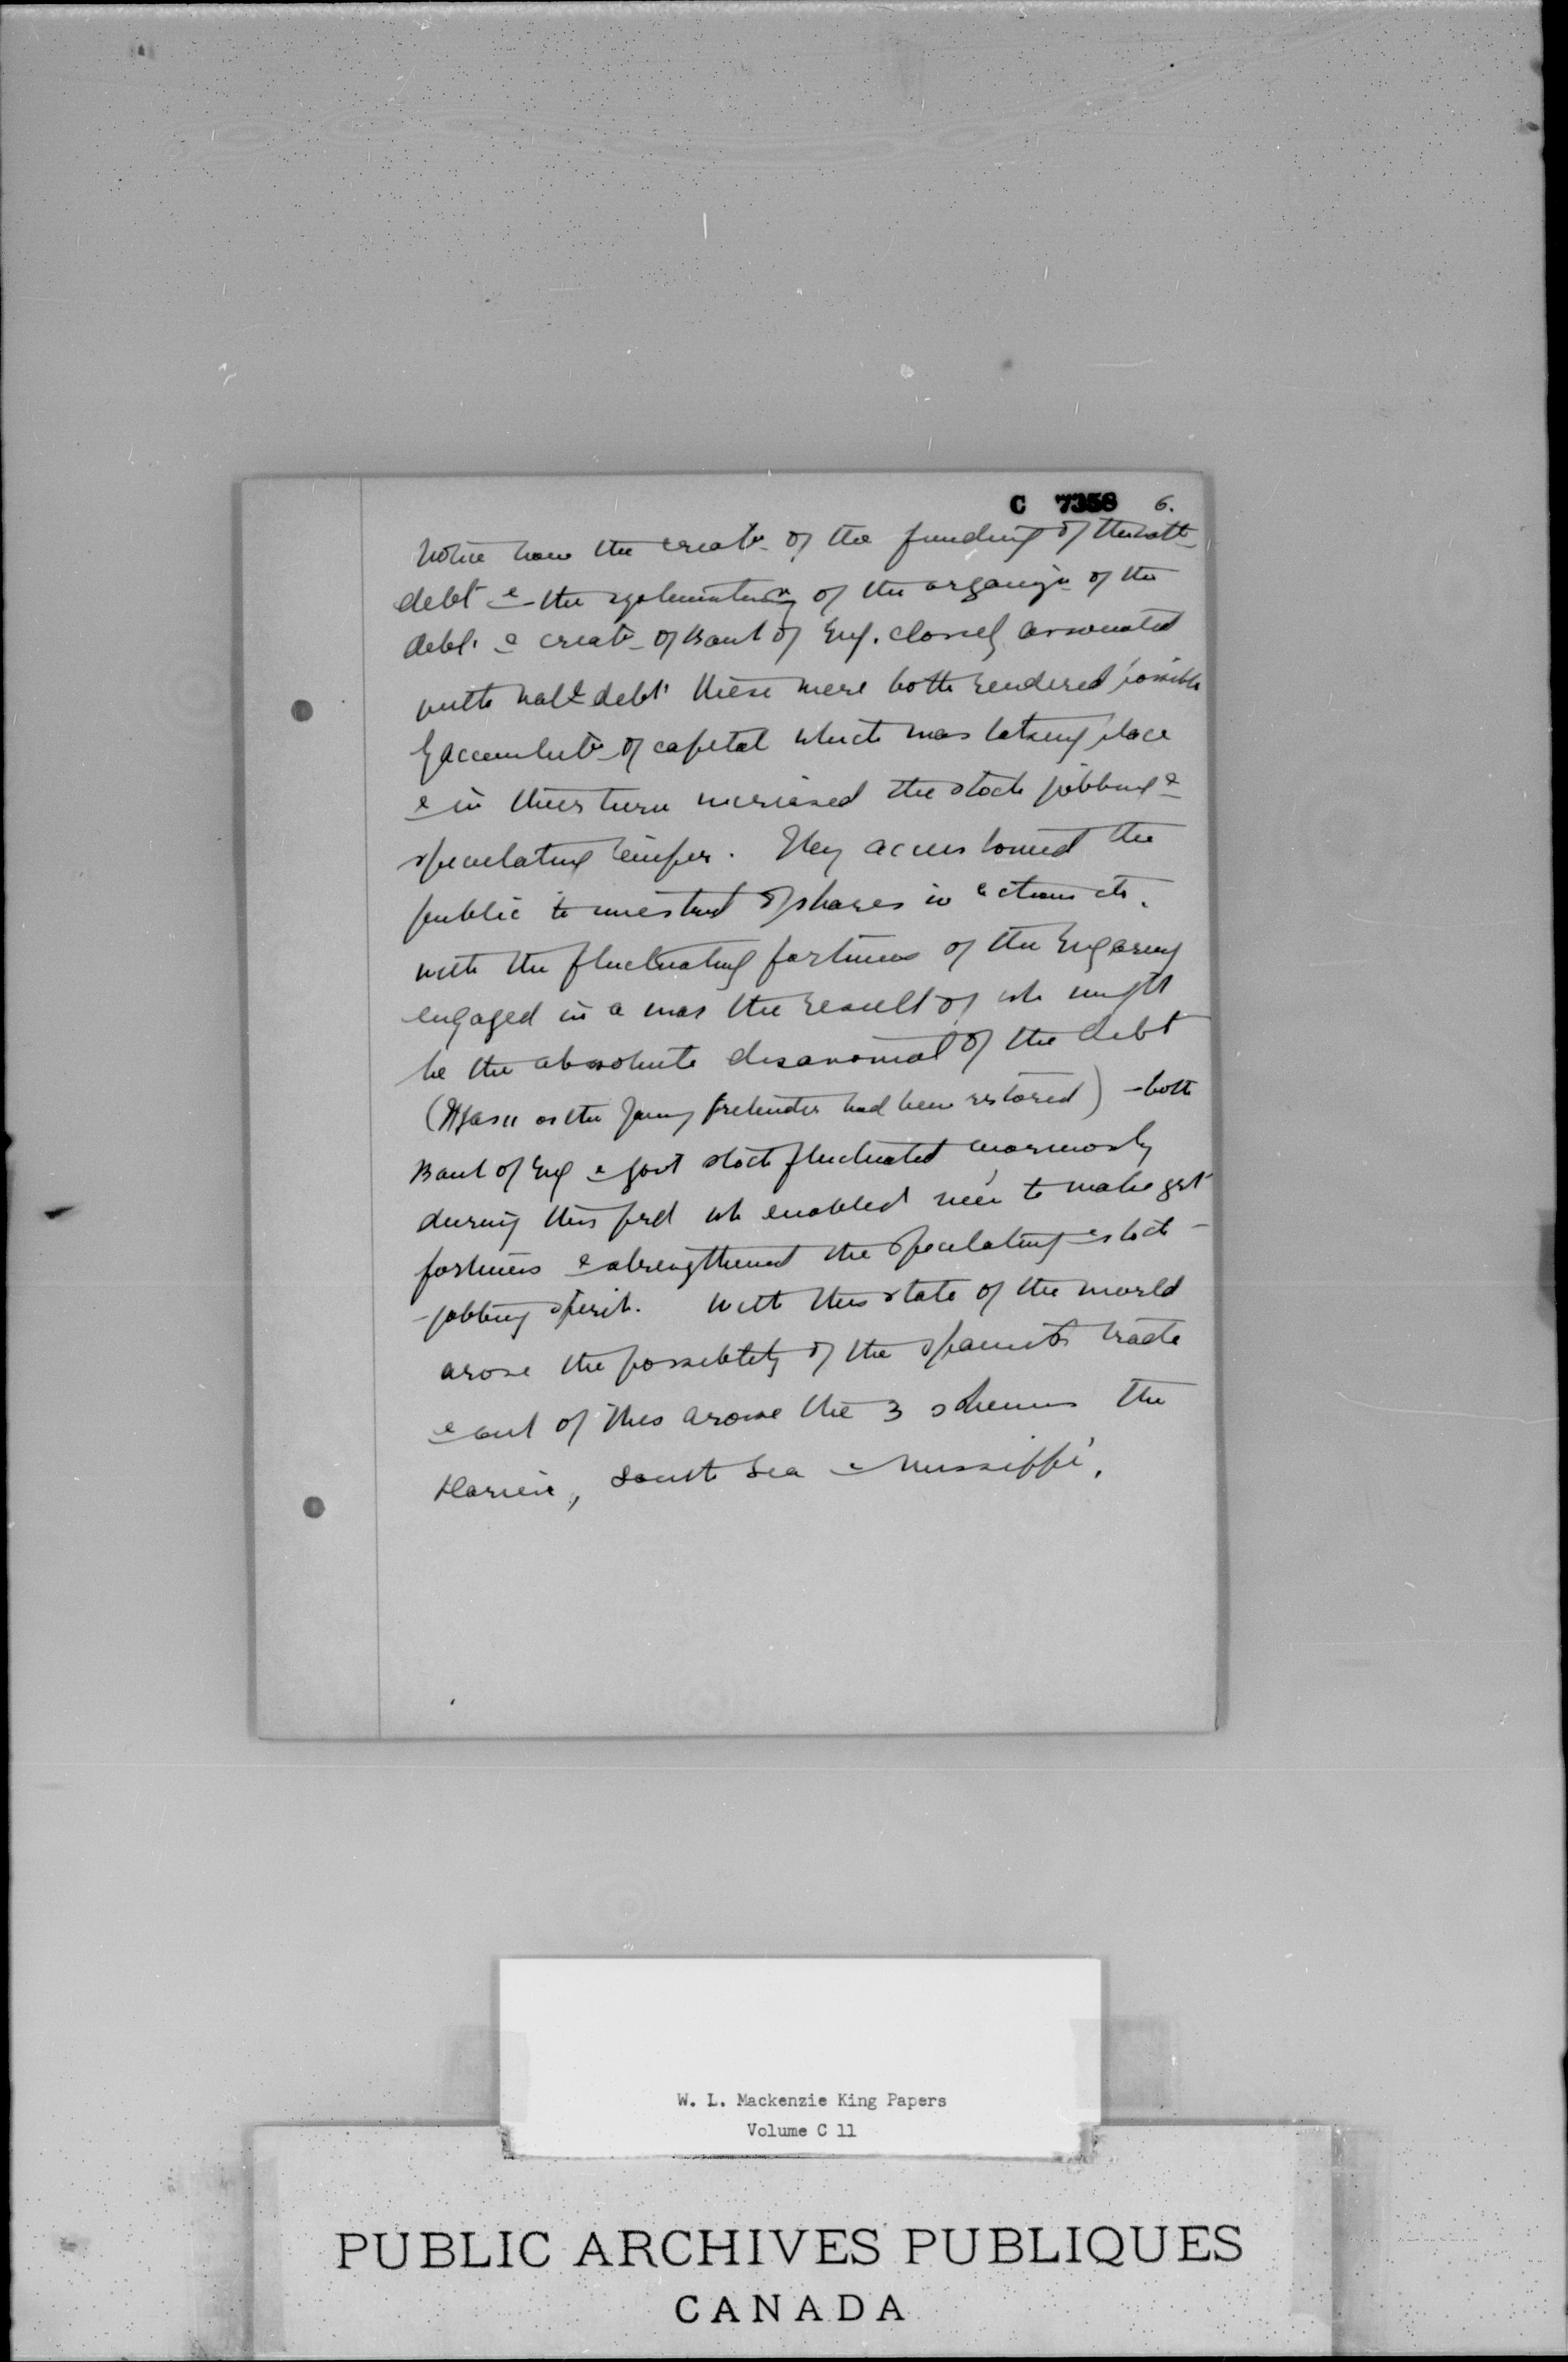 C 7358 6.
Notice how the creatn. of the funding of the natl
debt & the systematizn of the organizn of the
debt. & creatn of Bank of Eng. closely associated
with natl debt these were both rendered possible
by accumulatn of capital which was taking place
& in their turn increased the stock jobbing &
speculating temper. They accustomed the
public to investmt of shares in actions etc.
with the fluctuating fortunes of the Eng army
engaged in a war the result of wh might
be the absolute disavowal of the debt
(if Jas II or the Young Pretender had been restored) - both
Bank of Eng & govt stock fluctuated enormously
during this prd wh enabled men to make grt
fortunes & strengthened the speculating & stock-
-jobbing spirit. With this state of the world
arose the possibility of the Spanish trade
& out of this arose the 3 schemes the
Darien, South Sea & Mississippi.
W. L. Mackenzie King Papers
Volume C 11
PUBLIC ARCHIVES PUBLIQUES
CANADA